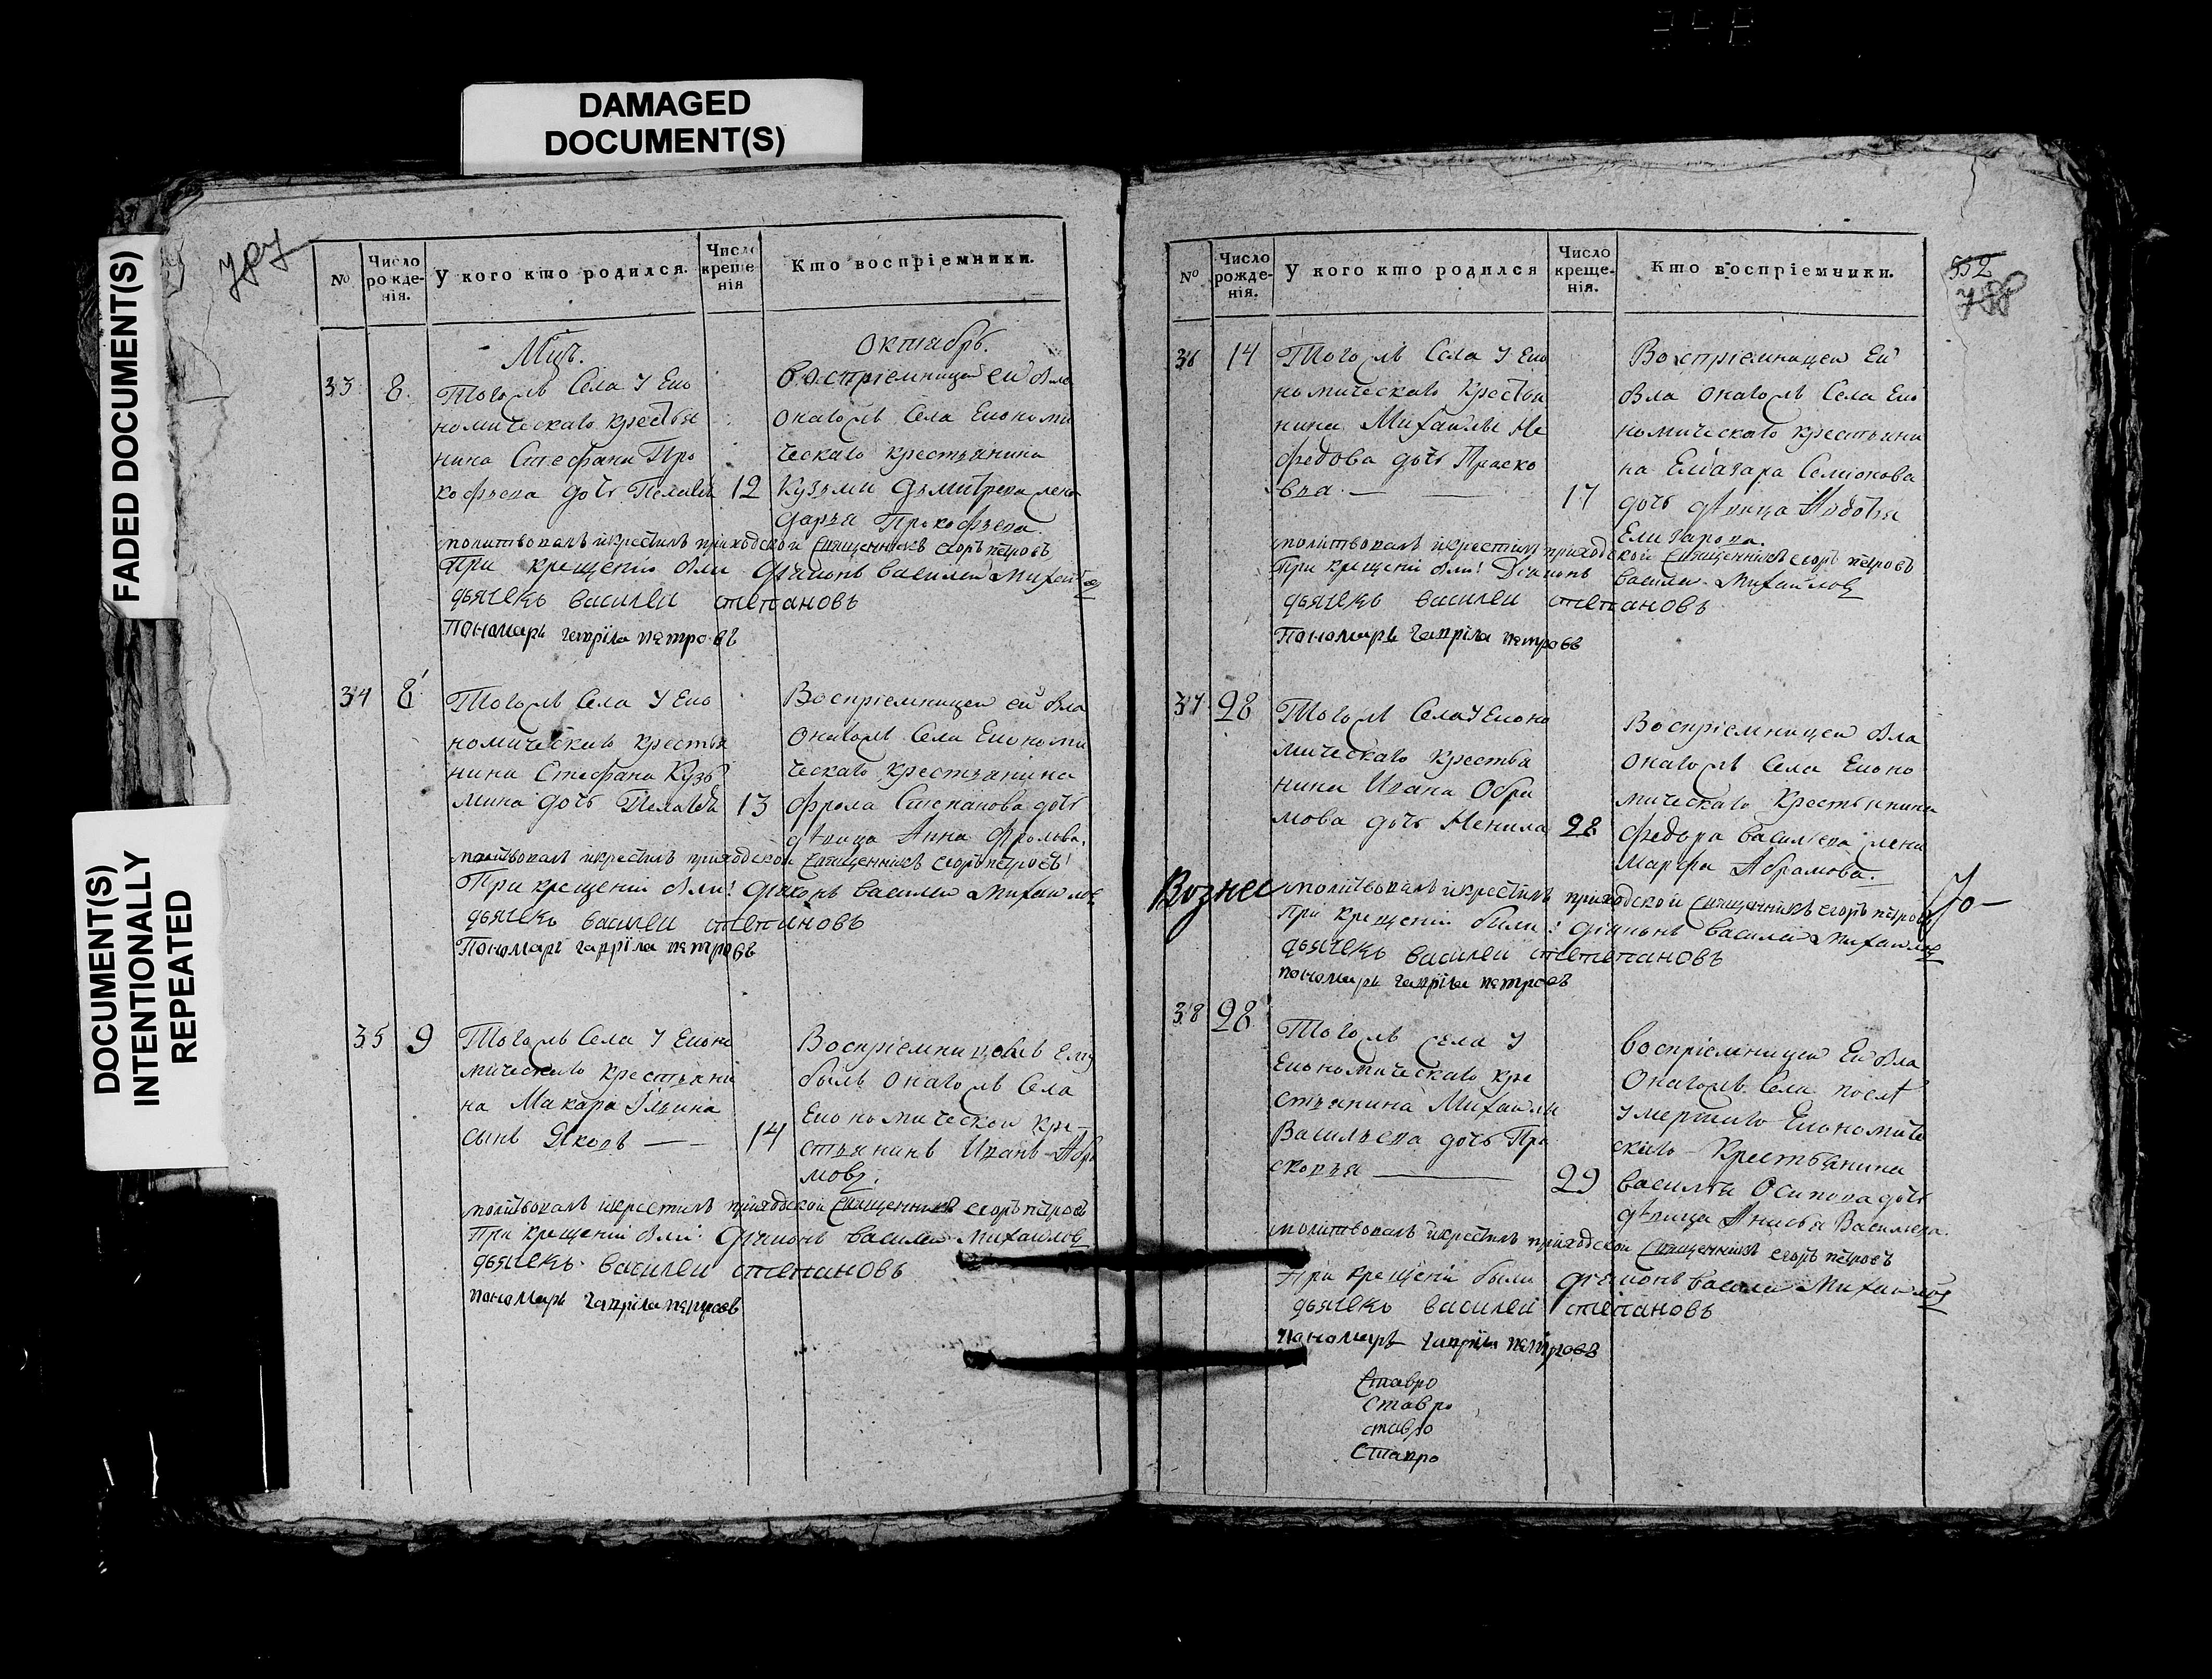 DAMAGED
DOCUMENT(S)
FADED DOCUMENT(S)
DOCUMENT(S)
INTENTIONALLY
REPEATED
787
№
Число рожденія.
У кого кто родился.
Число крещенія
Кто воспріемники.
Мцъ. Октябрь.
33 8
Тогожъ Села У Еко
номическаго крестья
нина Стефана Про
кофьева дочь Пелагія
12
Воспріемницей ей была
онагожъ Села Економи
ческаго крестьянина
Кузьми Дъмитрева жена
Дарья Прокофьева.
молитвовалъ икрестилъ приходской Священникъ егоръ петровъ
При крещеніи были діаконъ василей Михайловъ
дьячекъ василеи степановъ
Пономарь гаврiла петровъ
34 8
Тогожъ Села У Еко
номическаго крестья
нина Стефана Кузь
мина дочь Пелагія
13
Воспріемницей ей была
Онагожъ Села Економи
ческаго крестьянина
фрола Степанова дочь
дѣвица Анна Фролова.
молитвовалъ икрестилъ приходской Священникъ егоръ петровъ
При крещеніи были: діаконъ василей Михайловъ
дьячекъ василеи степановъ
Пономарь гаврiла петровъ
35 9
Тогожъ Села У Еконо
мическаго крестьяни
на Макара Ильина
сынъ Яковъ —
14
Воспріемникомъ ему
былъ Онагожъ Села
Економической кре-
стьянинъ Иванъ Абра
мовъ.
молитвовалъ икрестилъ приходской Священникъ егоръ петровъ
При крещеніи были: діаконъ василей Михайловъ
дьячекъ василеи степановъ
пономарь гаврiла петровъ
552
788
№
Число рожденія.
У кого кто родился
Число крещенія.
Кто воспріемники.
36 14
Тогожъ Села У Эко
номическаго крестья
нина Михайлы Не
федова дочь Праско
вья. —
17
Воспріемницей Ей
была онагожъ Села Еко
номическаго крестьяни
на Елизара Семионова
дочь дѣвица
Елизарова.
молитвовалъ икрестилъ приходской Священникъ егоръ петровъ
При крещеніи были: Діаконъ василей Михайловъ
дьячекъ василеи степановъ
Пономарь гаврiла петровъ
37 28
Тогожъ Села У Еконо
мическаго крестья
нина Ивана Обра
мова дочь Ненила
28
Воспріемницей была
онагожъ Села Еконо
мическаго Крестьянина
федора васильева жена
марфа Абрамова.
Вознес
молитвовалъ икрестилъ приходской Священникъ егоръ петровъ
При крещеніи были: діаконъ василей Михайловъ
дьячекъ василеи степановъ
пономарь гаврiла петровъ
38 28
Тогожъ села У
Економическаго кре
стьянина Михайлы
Васильева дочь Пра
сковья —
29
воспріемницей Ей была
Онагожъ Села послѣ
умершаго Економиче
скаго Крестьянина
василья Осипова дочь
дѣвица Анисья Васильева.
молитвовалъ икрестилъ приходской Священникъ егоръ петровъ
При крещеніи были діаконъ василей Михайловъ
дьячекъ василеи степановъ
пономарь гаврiла петровъ
Ставро
Ставро
ставро
Ставро